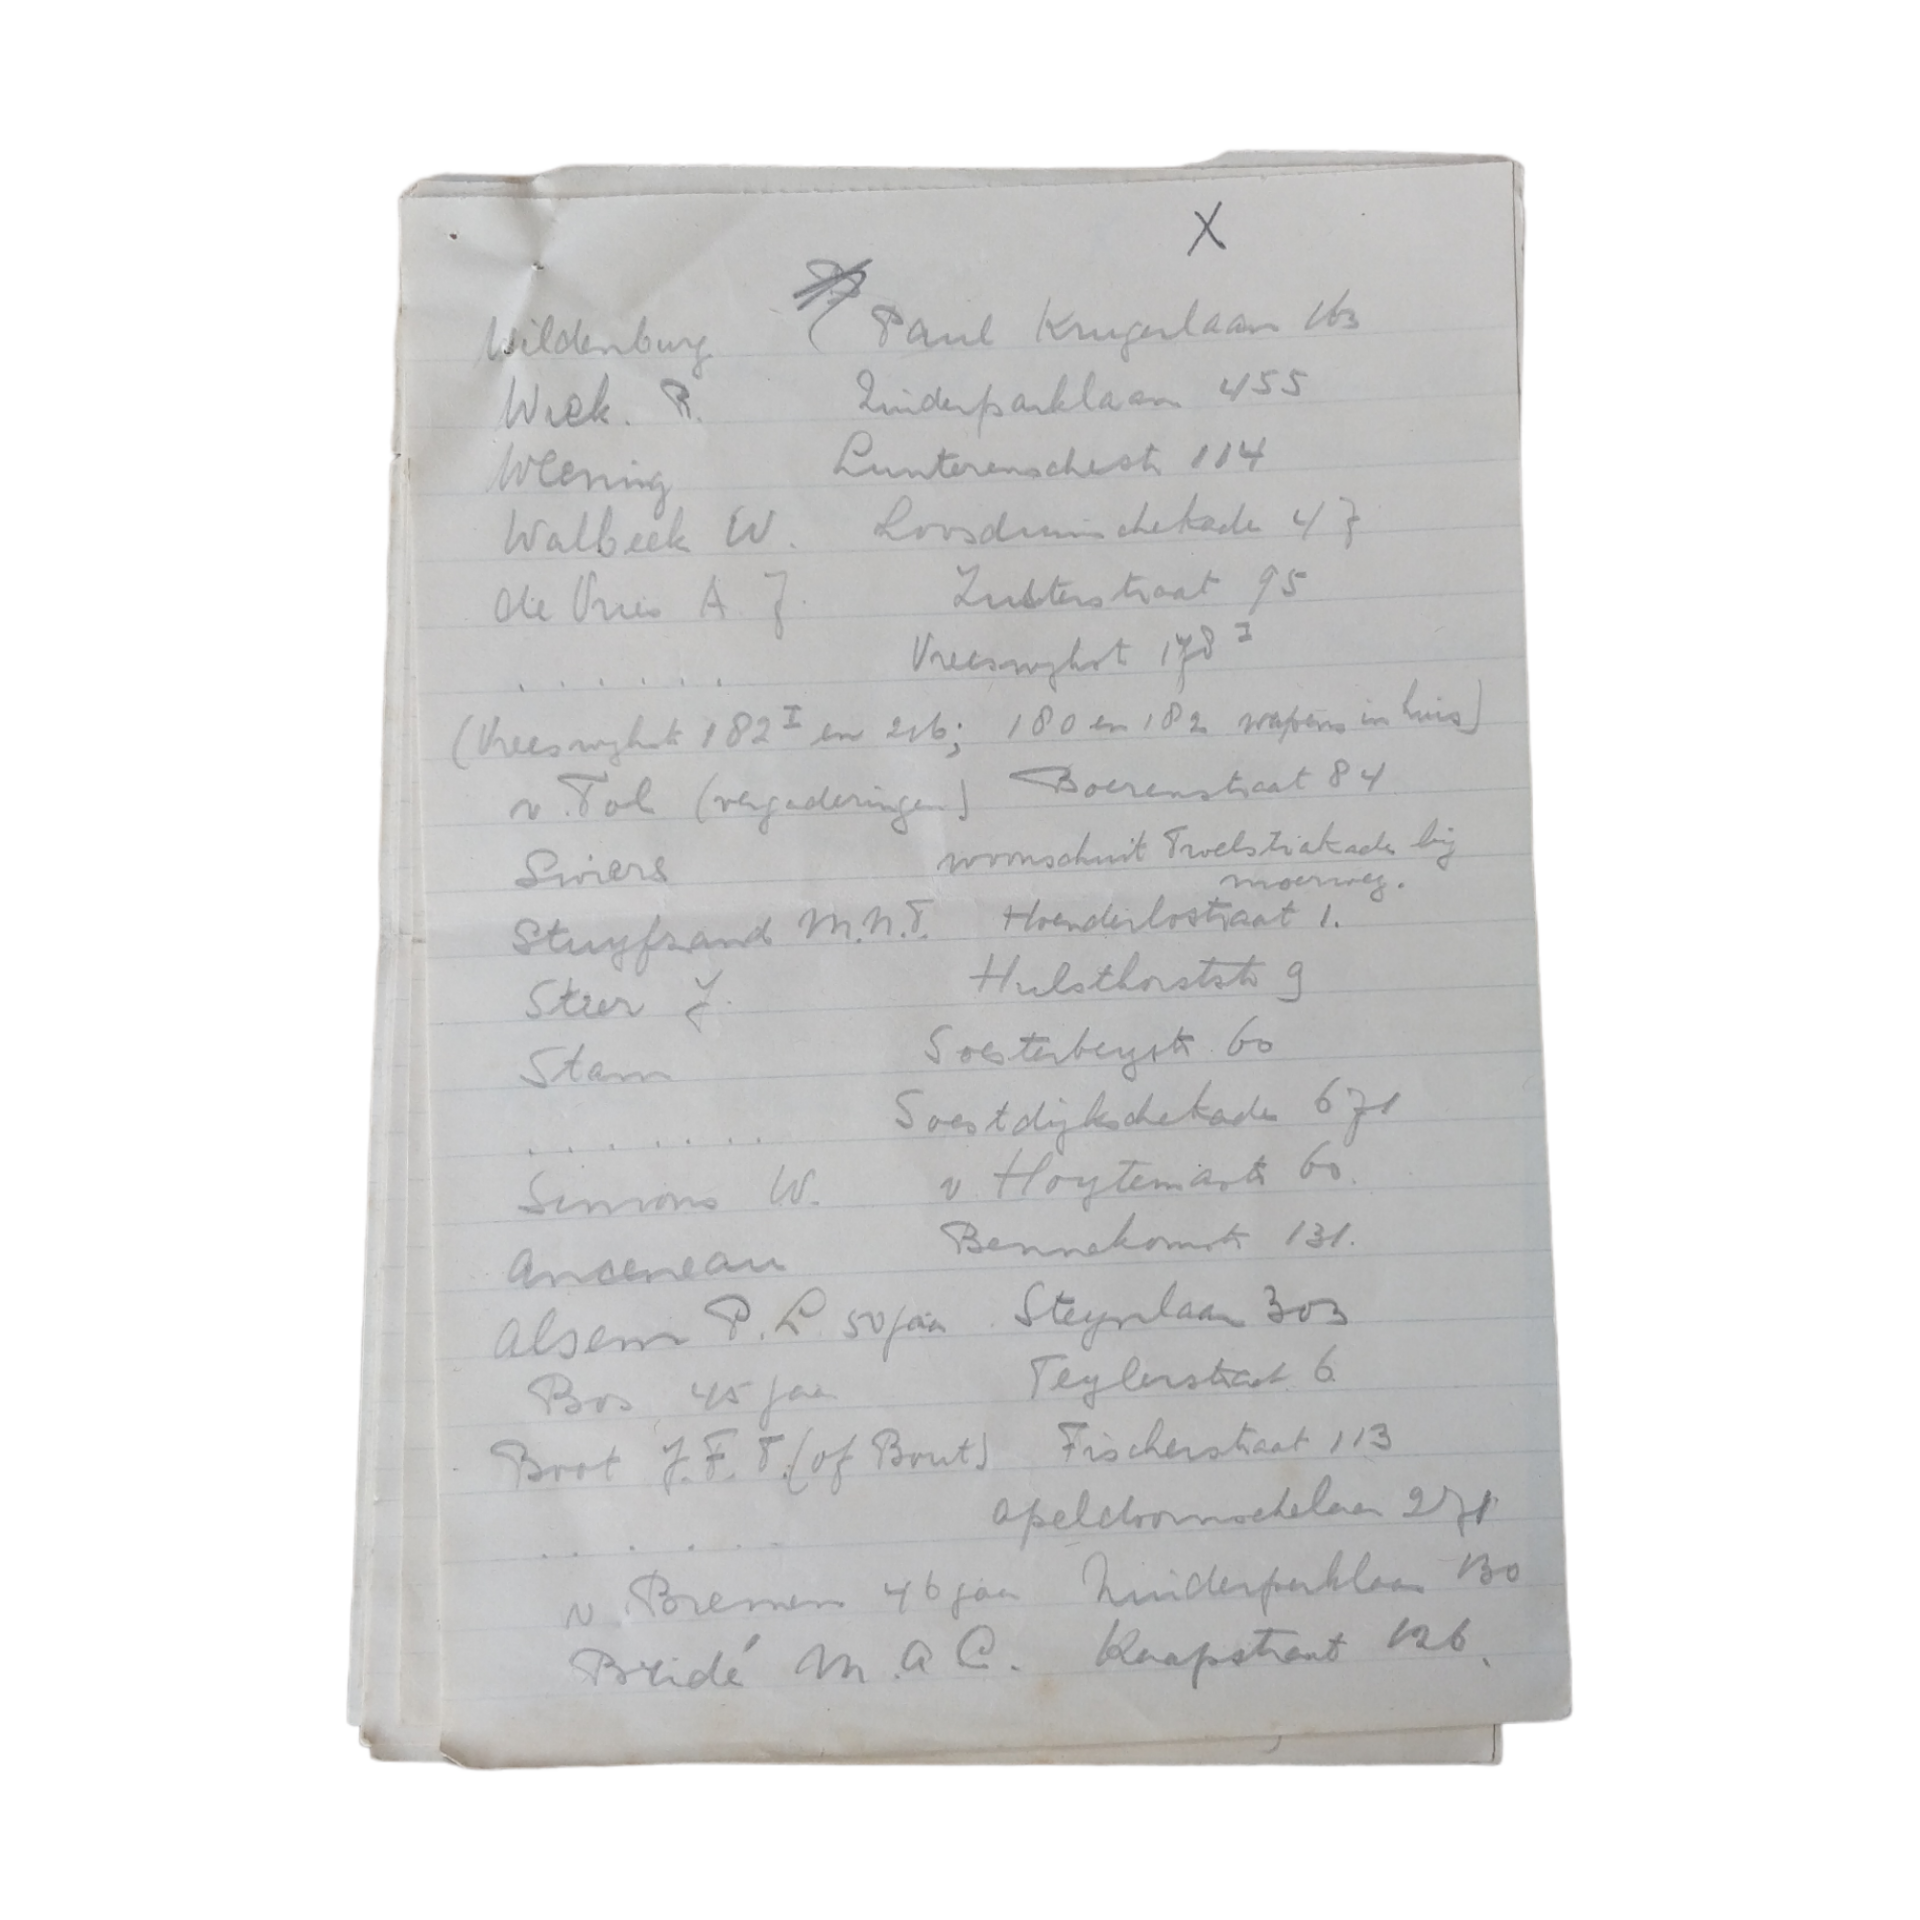 X
Wildenburg Paul Krugerlaan 163
Wiek. R. Zuiderparklaan 455
Weening Lunterenschestr 114
Walbeek W. Loosduinschekade 47
de Vries A J. Zusterstraat 95
. . . . . . Vreeswijkstr 178 I
(Vreeswijkstr 182 I en 216; 180 en 182 wapens in huis)
v. Tol (vergaderingen) Boerenstraat 84
Swiers woonschuit Troelstrakade bij
moerweg.
Stuyfzand M.N.T. Hoenderlostraat 1.
Steer J. Hulsthorststr 9
Stam Soesterbergstr 60
. . . . . . . Soestdijkschekade 671
Simons W. v Hoytemastr 60.
Anceneau Bennekomstr 131.
Alsem P. L. 50 jaar Steynlaan 303
Bos 45 jaar Teylerstraat 6
Boot J.F.T. (of Bout) Fischerstraat 113
. . . . . . Apeldoornschelaan 271
v. Bremen 46 jaar Zuiderparklaan 130
Bridé M. A C. Kaapstraat 126.